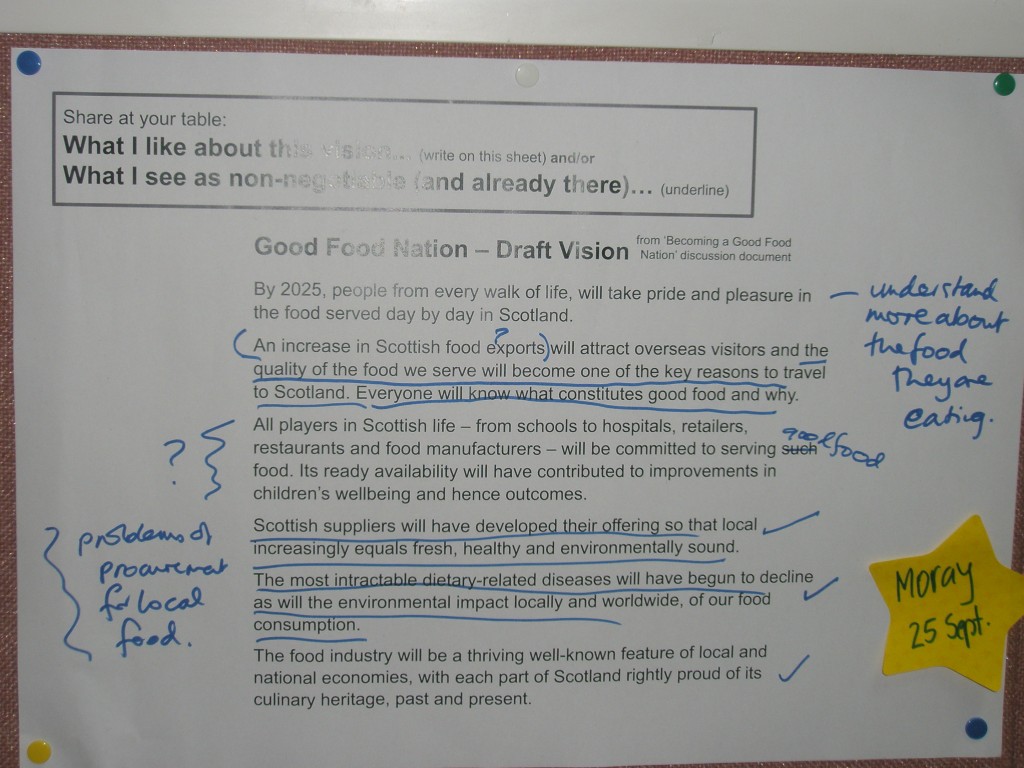 Share at your table:
What I like about this vision... (write on this sheet) and/or
What I see as non-negotiable (and already there)... (underline)
Good Food Nation – Draft Vision from 'Becoming a Good Food
Nation' discussion document
By 2025, people from every walk of life, will take pride and pleasure in
the food served day by day in Scotland.
— understand
more about
the food
they are
eating.
?
(An increase in Scottish food exports) will attract overseas visitors and the
quality of the food we serve will become one of the key reasons to travel
to Scotland. Everyone will know what constitutes good food and why.
?
All players in Scottish life – from schools to hospitals, retailers,
restaurants and food manufacturers – will be committed to serving such good food
food. Its ready availability will have contributed to improvements in
children's wellbeing and hence outcomes.
problems of
procurement
for local
food.
Scottish suppliers will have developed their offering so that local
increasingly equals fresh, healthy and environmentally sound.
The most intractable dietary-related diseases will have begun to decline
as will the environmental impact locally and worldwide, of our food
consumption.
The food industry will be a thriving well-known feature of local and
national economies, with each part of Scotland rightly proud of its
culinary heritage, past and present.
Moray
25 Sept.